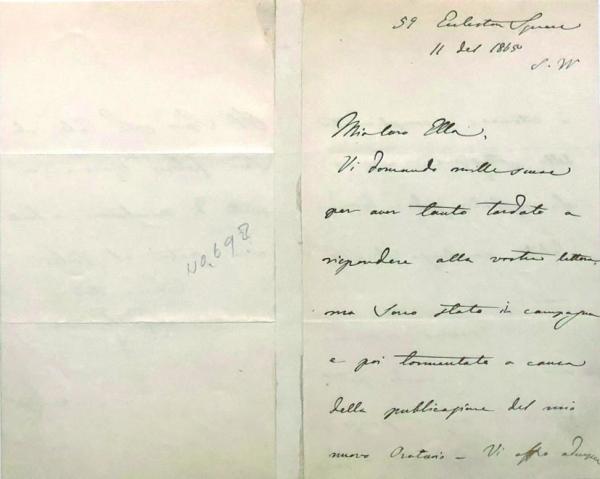 No. 698
59 Eccleston Square
11 del 1865
S. W
Mio caro Ella,
Vi domando mille scuse
per aver tanto tardato a
rispondere alla vostra lettera,
ma sono stato in campagna
e poi tormentato a causa
della publicazione del mio
nuovo Oratorio – Vi